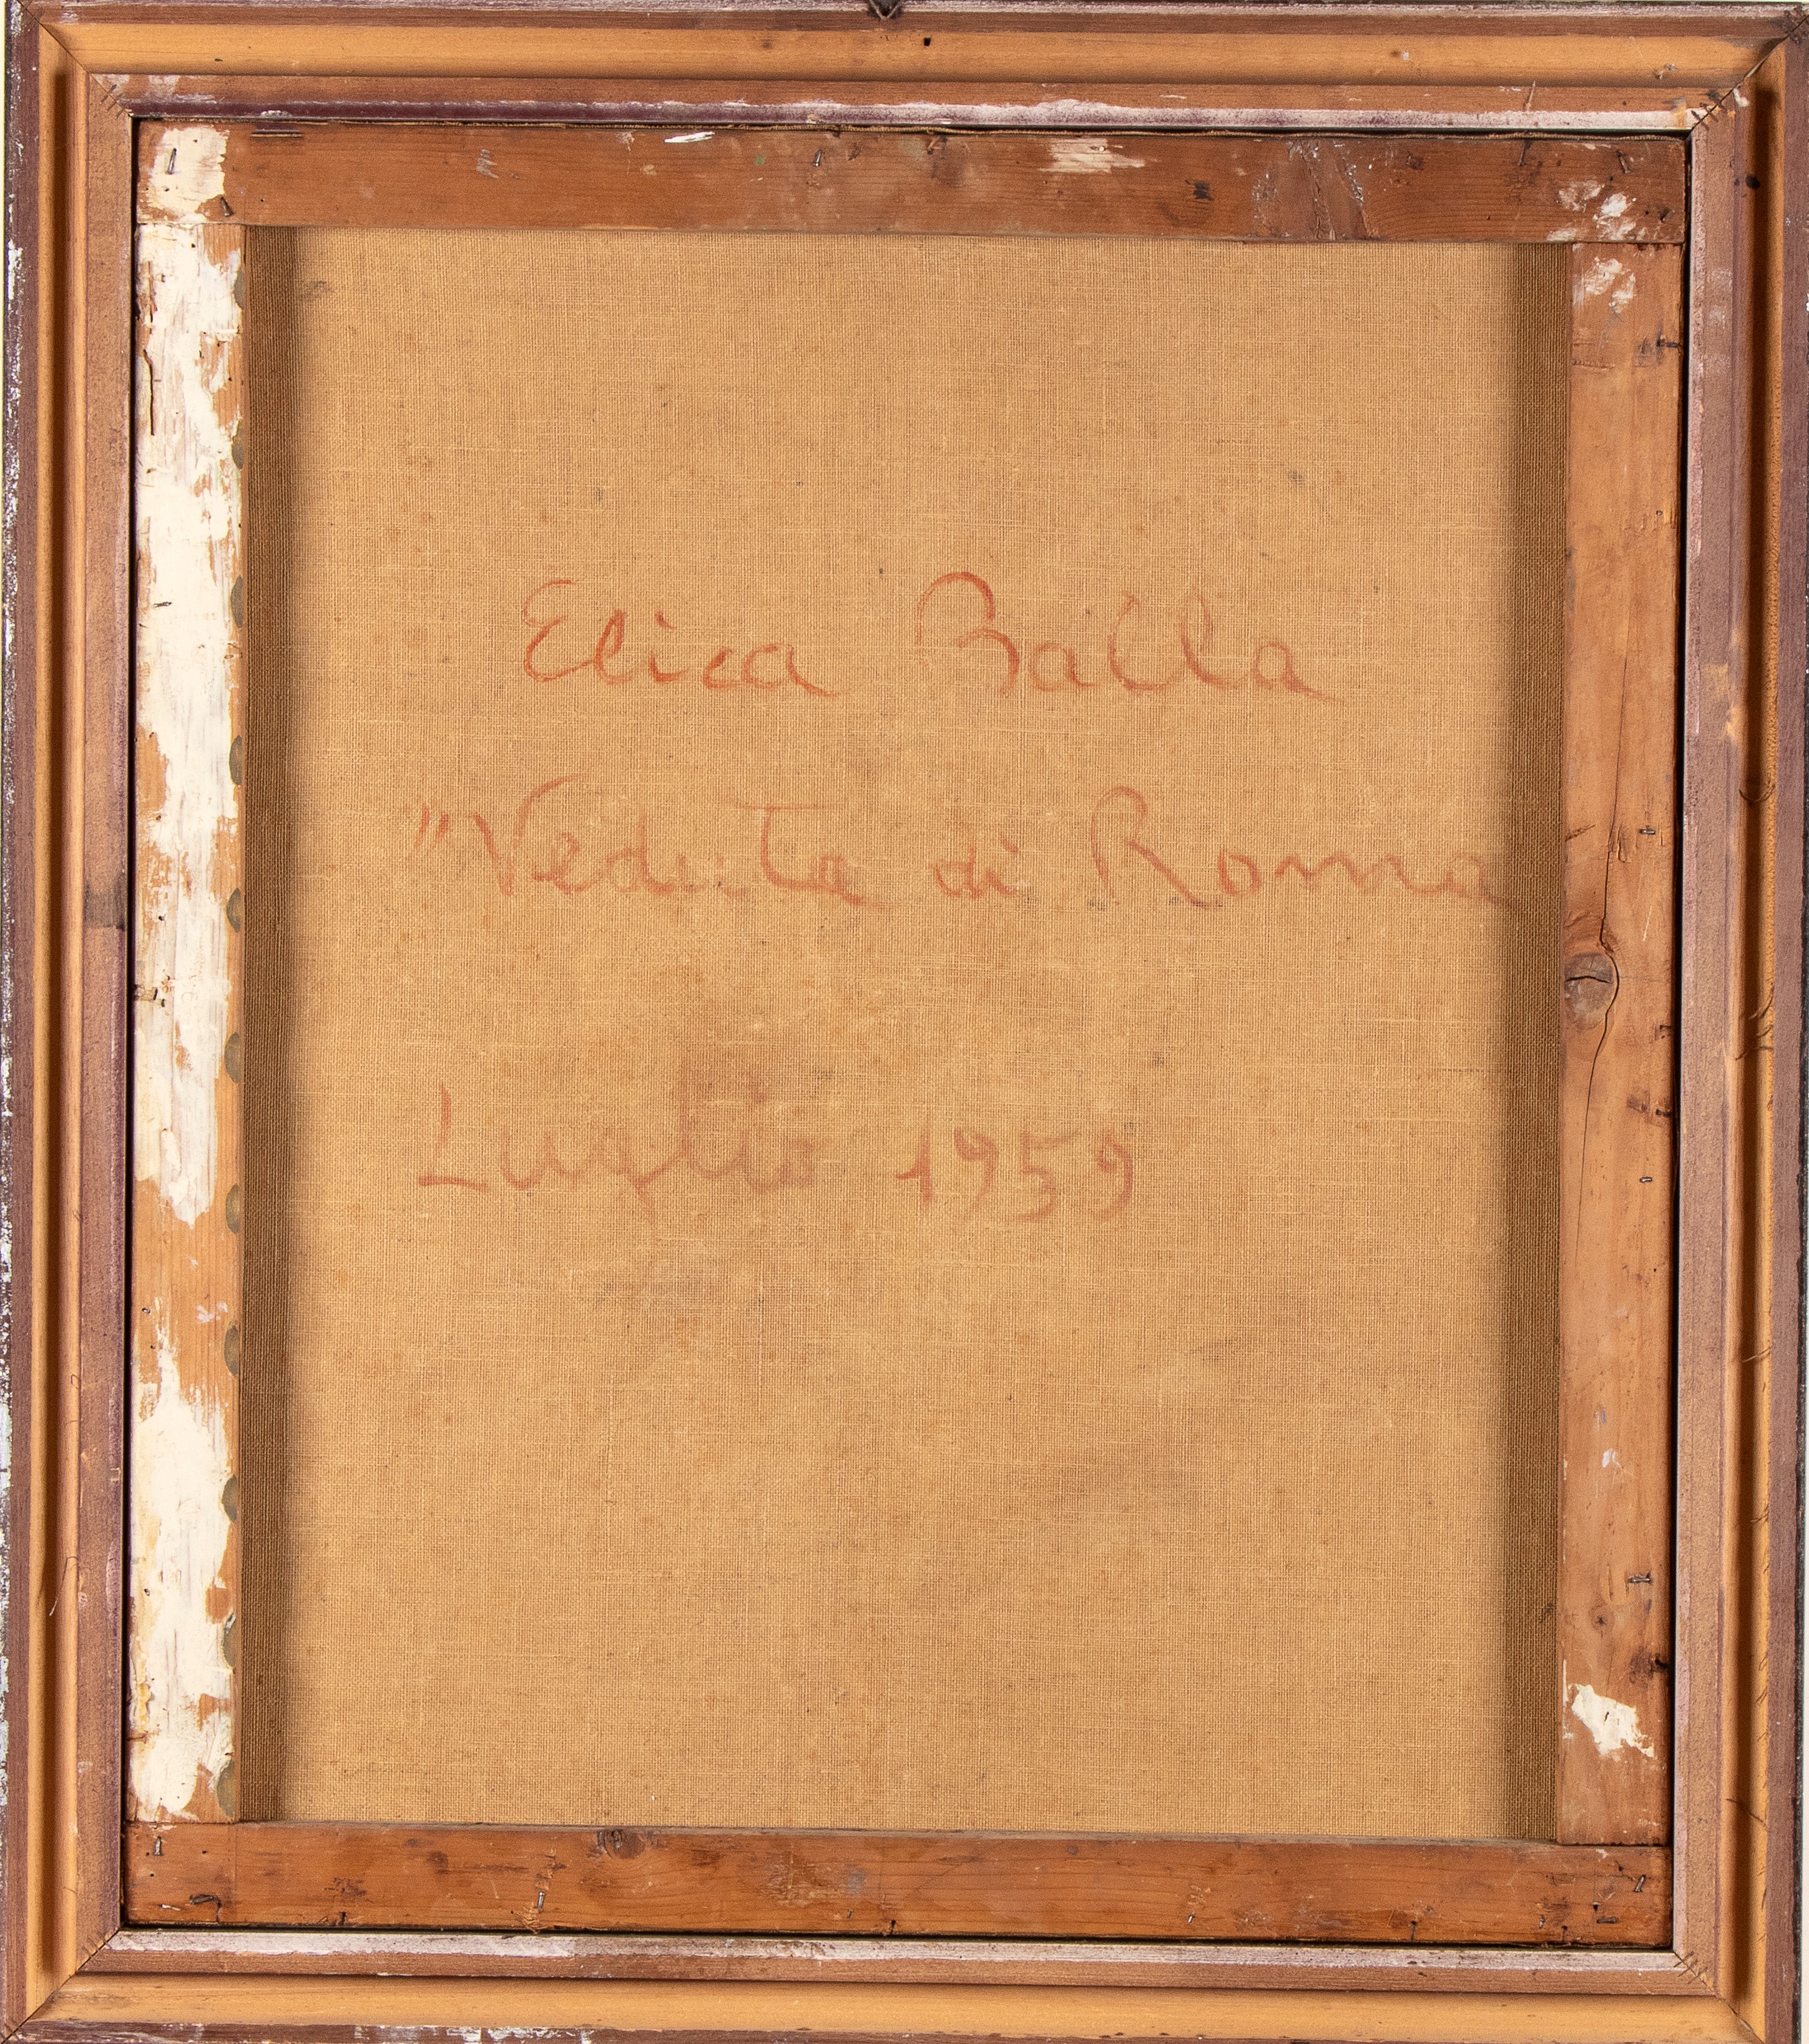 Elica Balla
"Veduta di Roma
Luglio 1959